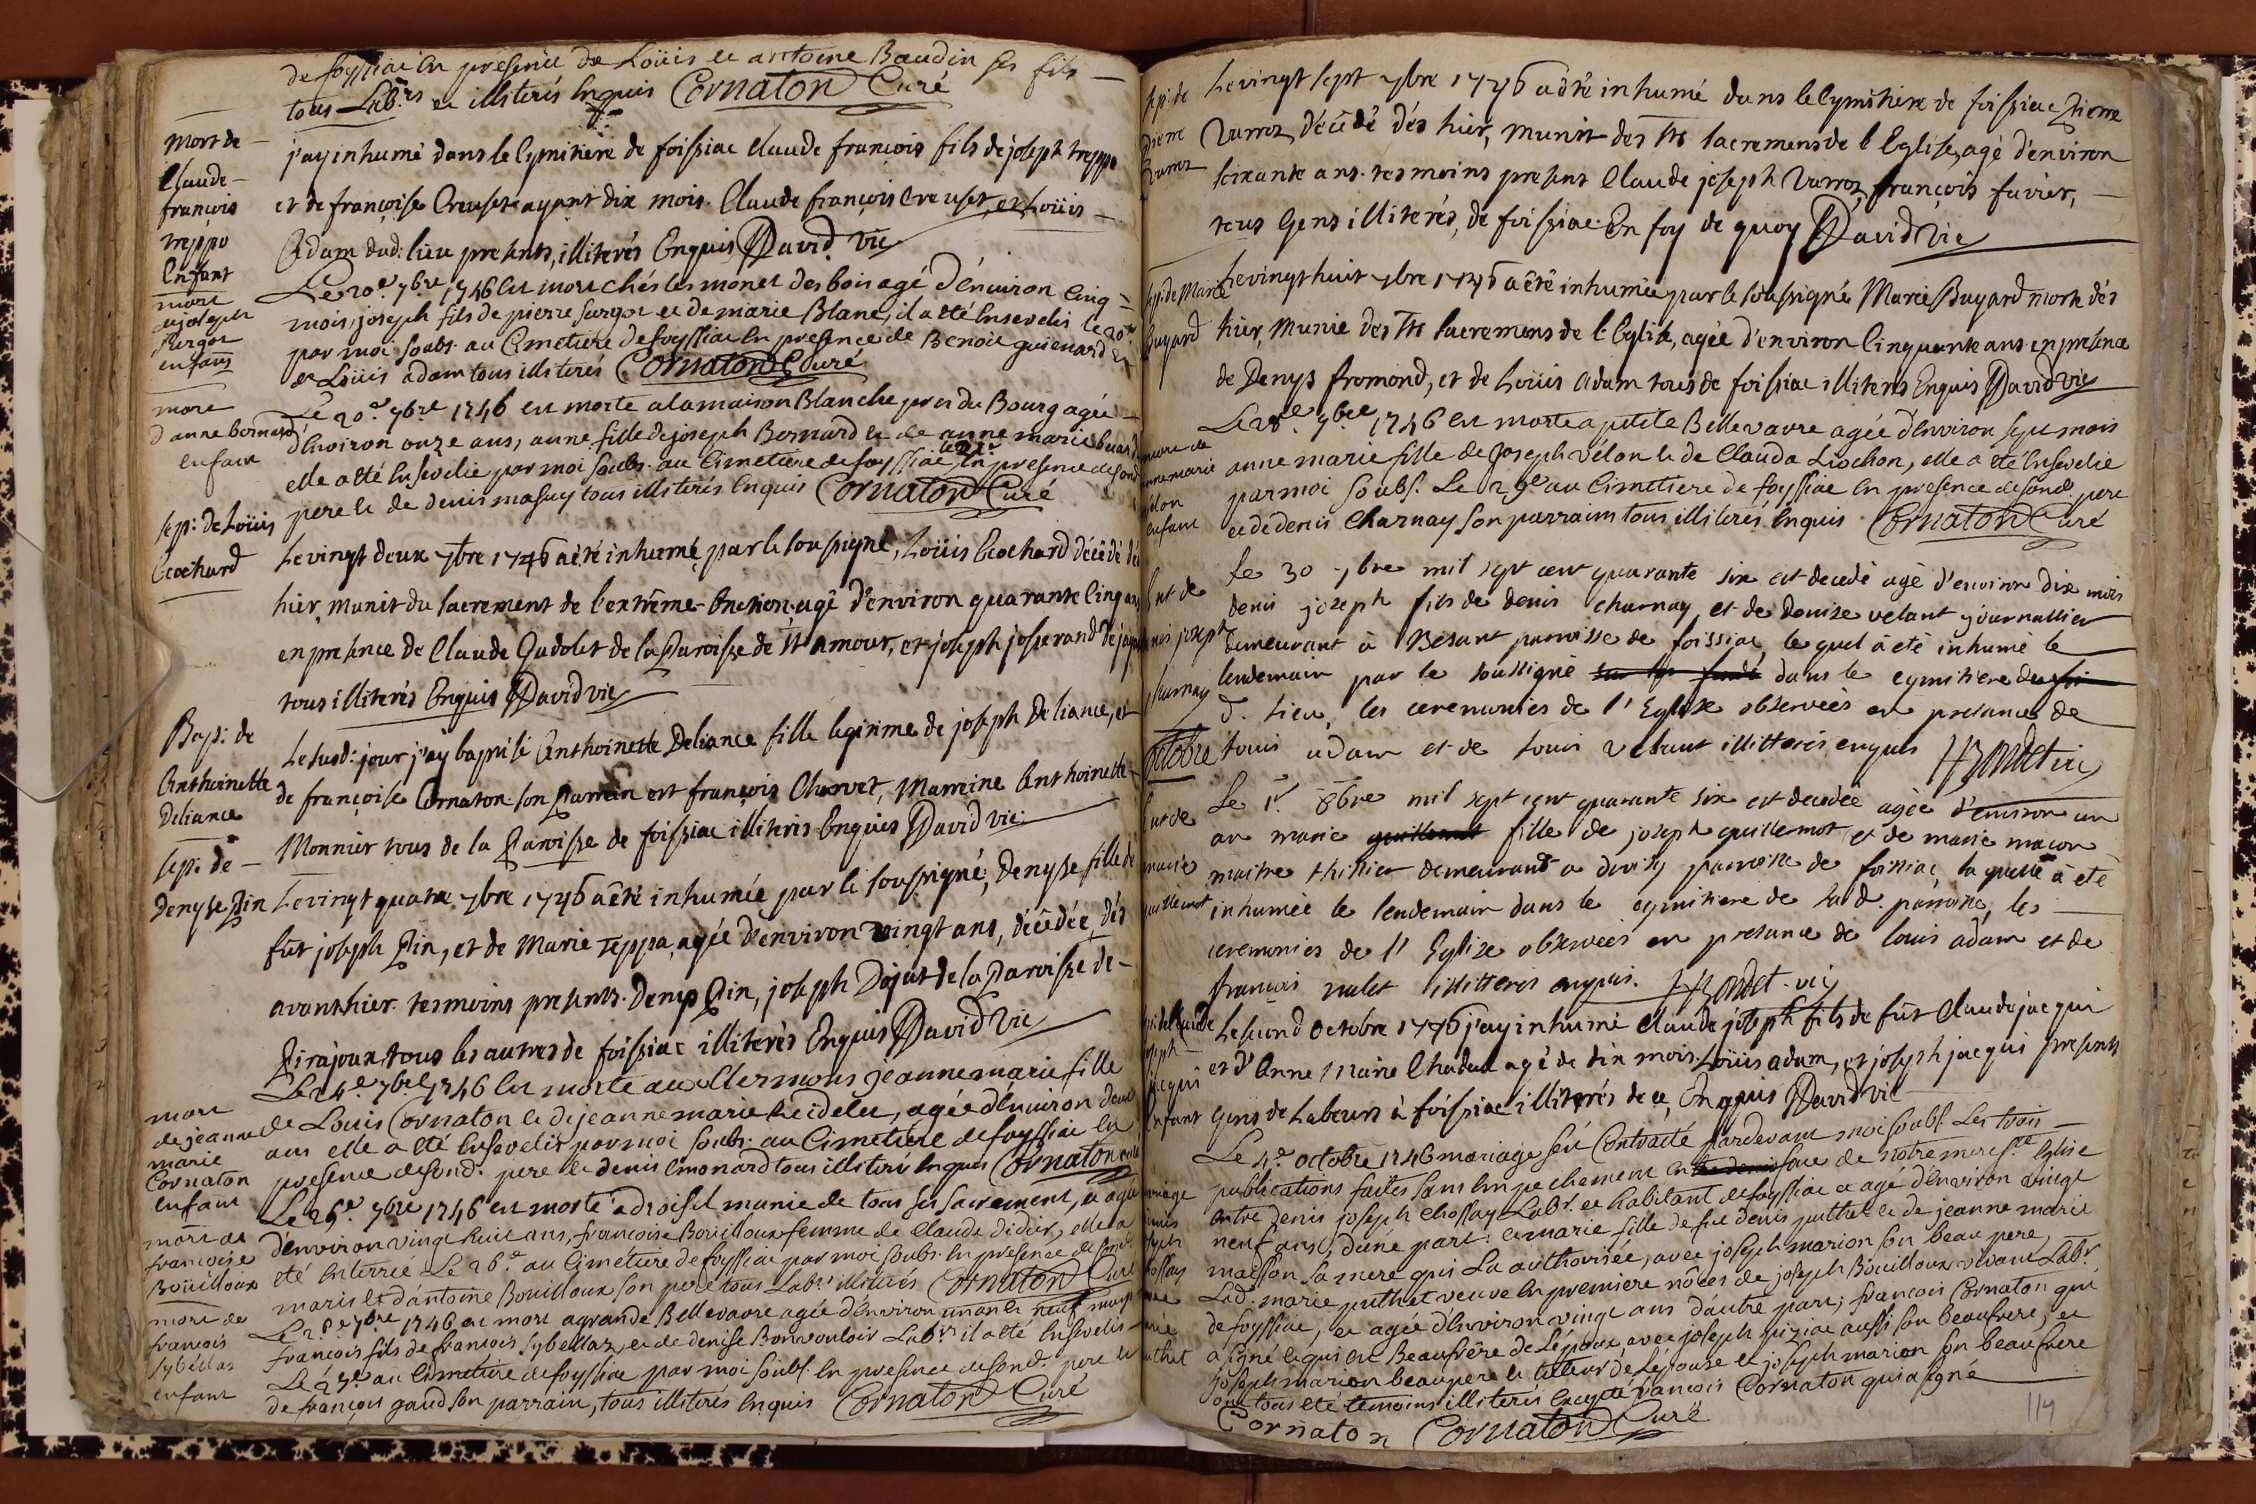 de foyssiac en presence de Loüis et antoine Baudin ses fils
tous Lab.rs et illiterés enquis Cornaton Curé
mort de
Claude
françois
treppo
Enfant
j'ay inhumé dans le Cymitiere de foissiac Claude françois fils de joseph treppo
et de françoise Creuset ayant dix mois. Claude françois Creuset, et Loüis
Adam dud: lieu presents, illiterés Enquis David vic
mort
de joseph
surgot
enfant
Le 20e 7bre 1746 est mort chés les monet des bois agé d'énviron cinq
mois, joseph fils de pierre surgot et de marie Blanc, il a eté Ensevelis le 20e
par moi soubs. au Cimetiere de foyssiac en presence de Benoit guienard
et Loüis adam tous illiterés Cornaton Curé
mort
d'anne bernard
enfant
Le 20e 7bre 1746 est morte a la maison Blanche pres du Bourg agée
d'énviron onze ans, anne fille de joseph Bernard et de anne marie
elle a eté Ensevelie par moi soubs. au Cimetiere de foyssiac le 21e en presence de sond
pere et de denis masuy tous illiterés Enquis Cornaton Curé
sep: de Loüis
Cochard
Le vingt deux 7bre 1746 a été inhumé par le soussigné, Loüis Cochard décédé dés
hier, munit du sacrement de l'extrême-Onction, agé d'environ quarante Cinq ans
en presence de Claude Gadolet de la Paroisse de St amour, et joseph josserand de
tous illiterés Enquis David vic
Bap: de
Anthoinette
Deliance
Le susd: jour j'ay baptisé Anthoinette Deliance fille legitime de joseph Deliance, et
de françoise Cornaton son Parrain est françois Charvet, Marreine Anthoinette
Monnier tous de la Paroisse de foissiac illiterés Enquis David vic
sep: de
Denyse Pin
Le vingt quatre 7bre 1746 a été inhumée par le soussigné, Denyse fille de
fût joseph Pin, et de Marie Teppa, agée d'environ vingt ans, décédée, dés
avant hier. tesmoins presents. Denys Pin, joseph Dojat de la Paroisse de
Pirajoux tous les autres de foissiac illiterés Enquis David vic
mort
de jeanne
marie
Cornaton
enfant
Le 24e 7bre 1746 est morte au Clermons jeanne marie fille
de Louis Cornaton et de jeanne marie, agée d'énviron deux
ans elle a eté Ensevelis par moi soubs. au Cimetiere de foyssiac en
presence de sond. pere et denis Emonard tous illiterés Enquis Cornaton curé
mort de
francoise
Boüilloux
Le 26e 7bre 1746 est morte a droisel munie de tous ses sacrement, et agée
d'énviron vingt huit ans, francoise Boüilloux femme de Claude Didier, elle a
eté Enterrée Le 26e au Cimetiere de foyssiac par moi soubs. En presence de sond.
maris et d'antoine Boüilloux son pere tous Lab.rs illiterés Cornaton Curé
mort de
francois
sybellas
enfant
Le 28e 7bre 1746 est mort a grande Bellevavre agée d'énviron un an et neuf moys
francois fils de francois sybellas, et de denise Bonvouloir Lab.rs il a eté Ensevelis
Le 29e au Cimetiere de foyssiac par moi soubs. En presence de sond. pere et
de françois gaud son parrain, tous illiterés Enquis Cornaton Curé
sep: de
Pierre
Varroz
Le vingt sept 7bre 1746 a été inhumé dans le Cymitiere de foissiac Pierre
Varroz décédé dés hier, munit des Sts sacremens de l'Eglise, agé d'environ
soixante ans. tesmoins present Claude joseph Varroz, françois favier,
tous Gens illiterés, de foissiac. En foy de quoy David vic
sep: de Marie
Buyard
Le vingt huit 7bre 1746 a été inhumée par le soussigné Marie Buyard morte dés
hier, Munie des Sts sacremens de l'Eglise, agée d'environ Cinquante ans en presence
de Denys fromond, et de Loüis Adam tous de foissiac illiterés Enquis David vic
morte de
anne marie
vélon
enfant
Le 28e 7bre 1746 est morte a petite Bellevavre agée d'énviron sept mois
anne marie fille de Joseph vélon et de Clauda Liochon, elle a eté Ensevelie
par moi soubs. Le 29e au Cimetiere de foyssiac en presence de sond. pere
et de denis Charnay son parrain tous illiterés Enquis Cornaton Curé
ent de
denis joseph
charnay
Le 30 7bre mil sept cent quarante six est decedé agé d'environ dix mois
denis joseph fils de denis charnay, et de denise velant journallier
demeurant à Besant parroisse de foissiac, le quel à eté inhumé le
lendemain par le soussigné dans le cymitiere du
d. lieu, les ceremonies de l'Eglise observeés en presance de
louis adam et de louis velant illitterés enquis vic
octobre
ent de
marie
guillemot
Le 1r 8bre mil sept cent quarante six est decedée agée d'environ un
an marie guillemot fille de joseph guillemot et de marie macon
maitre thissier demeurand a divisy parroisse de foissiac, la quelle à eté
inhumée le lendemain dans le cymitiere de lad. parroisse, les
ceremonies de l'Eglize observeés en presance de louis adam et de
francois valet illitterés enquis. vic
sep: de Claude
joseph
jacqui
Enfant
Le second octobre 1746 j'ay inhumé Claude joseph fils de fût Claude jacqui
et d'Anne Marie Chadad agé de dix mois. Loüis Adam, et joseph jacqui presents
Gens de Labeurs à foissiac illiterés de ce, Enquis David vic
mariage
denis
joseph
chossay
marie
puthet
Le 4e octobre 1746 mariage feû Contracté pardevant moi soubs. Les trois
publications faites sans Empechement en face de notre mere Ste Eglise
entre denis joseph chossay Lab.r et habitant de foyssiac et agé d'énviron vingt
neuf ans, d'une part: et marie fille de feu denis puthet et de jeanne marie
masson sa mere qui La authorisée, avec joseph marion son beau pere,
Lad. marie puthet veuve En premiere nôces de joseph Boüilloux vivant Lab.r
de foyssiac, et agée d'énviron vingt ans d'autre part; francois Cornaton qui
a signé et qui est Beaufrére de L'époux, avec joseph piziac aussi son beaufrere, et
joseph marion beaupere et tuteur de L'épouse et joseph marion son beaufrere
ont tous eté témoins illiterés Excepté francois Cornaton qui a signé
Cornaton Cornaton Curé
119